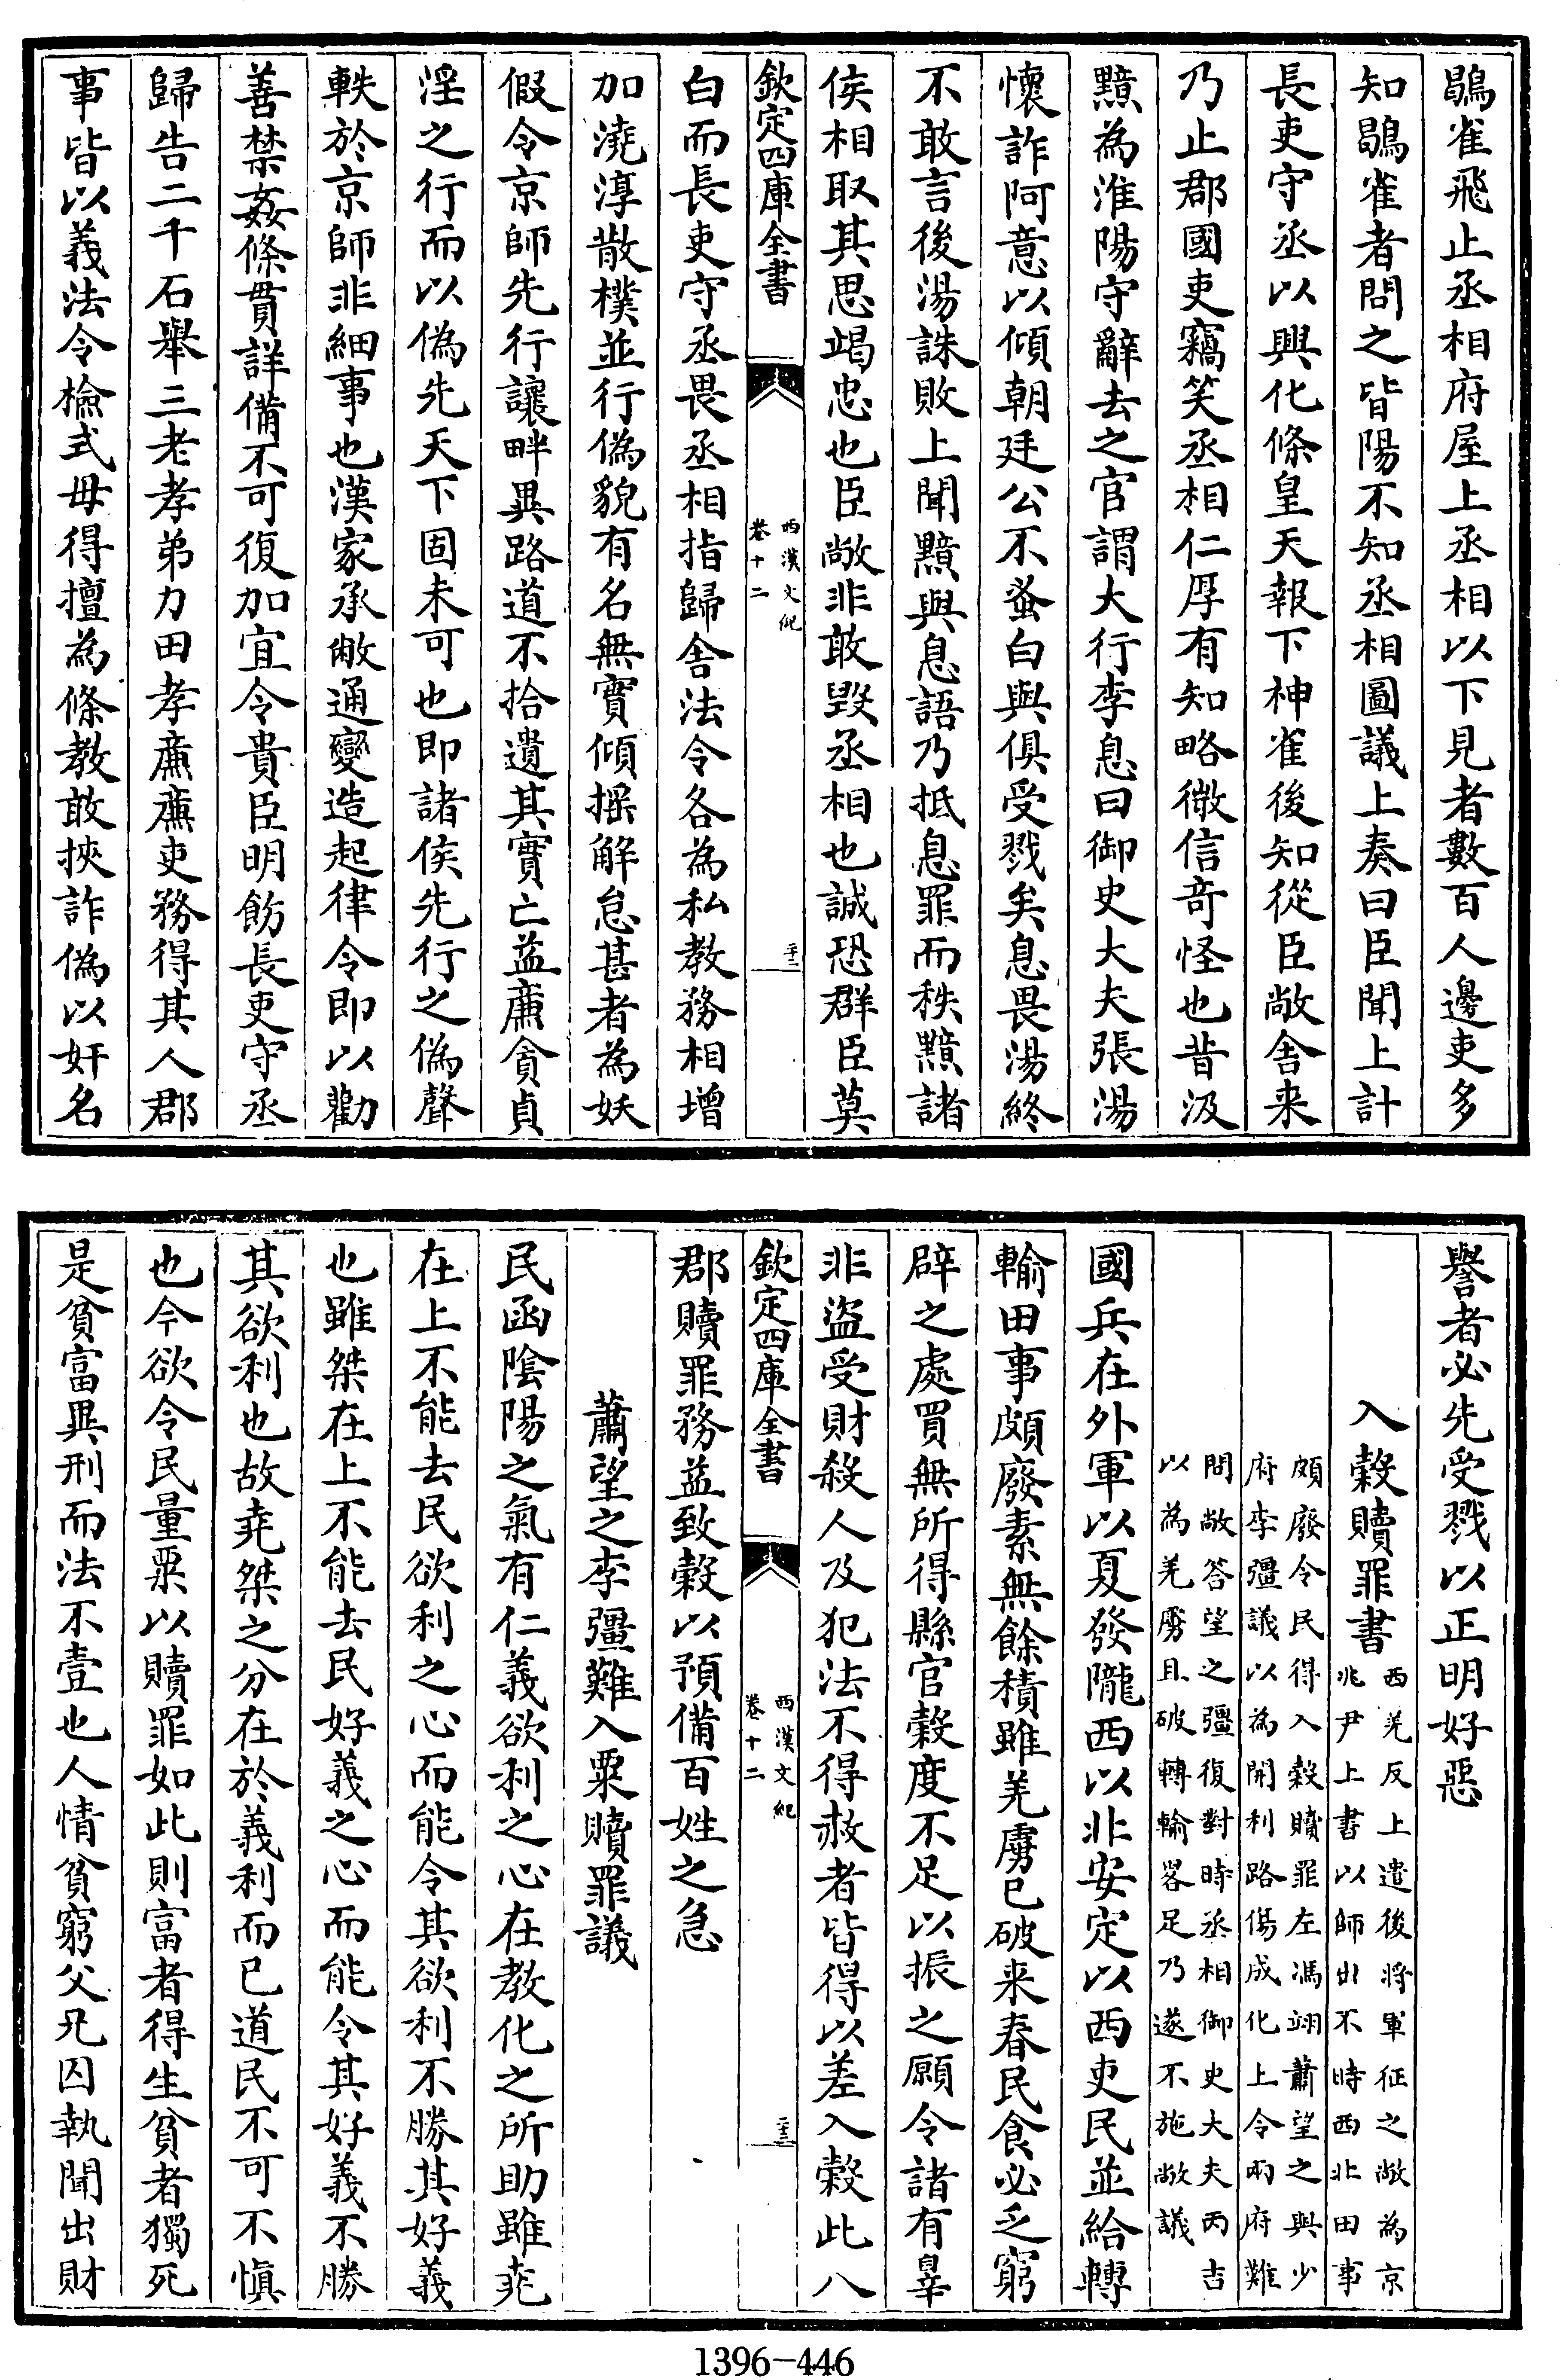 鶡雀飛止丞相府屋上丞相以下見者數百人邊吏多
知鶡雀者問之皆陽不知丞相圖議上奏曰臣聞上計
長吏守丞以興化條皇天報下神雀後知從臣敞舍来
乃止郡國吏竊笑丞相仁厚有知略微信竒怪也昔汲
黯為淮陽守辭去之官謂大行李息曰御史大夫張湯
懷詐阿意以傾朝廷公不蚤白與俱受戮矣息畏湯終
不敢言後湯誅敗上聞黯與息語乃抵息罪而秩黯諸
侯相取其思竭忠也臣敞非敢毀丞相也誠恐群臣莫
欽定四庫全書
西漢文紀
卷十二
二十二
白而長吏守丞畏丞相指歸舍法令各為私教務相增
加澆淳散樸並行偽貌有名無實傾揺解怠甚者為妖
假令京師先行讓畔異路道不拾遺其實亡益廉貪貞
淫之行而以偽先天下固未可也即諸侯先行之偽聲
軼於京師非細事也漢家承敝通變造起律令即以勸
善禁姦條貫詳備不可復加宜令貴臣明飭長吏守丞
歸告二千石舉三老孝弟力田孝廉廉吏務得其人郡
事皆以義法令檢式毋得擅為條教敢挾詐偽以奸名
譽者必先受戮以正明好惡
入榖贖罪書
西羌反上遣後将軍征之敞為京
兆尹上書以師出不時西北田事
頗廢令民得入榖贖罪左馮翊蕭望之與少
府李彊議以為開利路傷成化上令兩府難
問敞答望之彊復對時丞相御史大夫丙吉
以為羌虜且破轉輸畧足乃遂不施敞議
國兵在外軍以夏發隴西以北安定以西吏民並給轉
輸田事頗廢素無餘積雖羌虜已破来春民食必乏窮
辟之處買無所得縣官榖度不足以振之願令諸有辠
非盜受財殺人及犯法不得赦者皆得以差入榖此八
欽定四庫全書
西漢文紀
卷十二
二十三
郡贖罪務益致榖以預備百姓之急
蕭望之李彊難入粟贖罪議
民函隂陽之氣有仁義欲利之心在教化之所助雖堯
在上不能去民欲利之心而能令其欲利不勝其好義
也雖桀在上不能去民好義之心而能令其好義不勝
其欲利也故堯桀之分在於義利而已道民不可不慎
也今欲令民量粟以贖罪如此則富者得生貧者獨死
是貧富異刑而法不壹也人情貧窮父兄囚執聞出財
1396-446